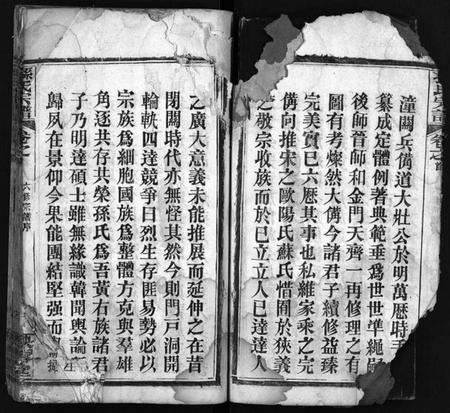 潼關兵備道大壯公於明萬歷時手
纂成定體例著典範垂為世世準繩嗣
後師晉師和金門天齊一再修理之有
圖有考燦然大備今諸君子續修益臻
完美實已六歷其事也私維家乘之完
備向推宋之歐陽氏蘇氏惜囿於狹義
之敬宗收族而於已立立人已達達人
之廣大意義未能推展而延伸之在昔
閉關時代亦無怪其然今則門戶洞開
輪軌四達競爭日烈生存匪易勢必以
宗族為細胞國族為整體方克與羣雄
角逐共存共榮孫氏為吾黃右族諸君
子乃明達碩士雖無緣識韓聞輿論
歸夙在景仰今果能團結堅强而
孫氏宗譜
卷之首
六修宗譜序